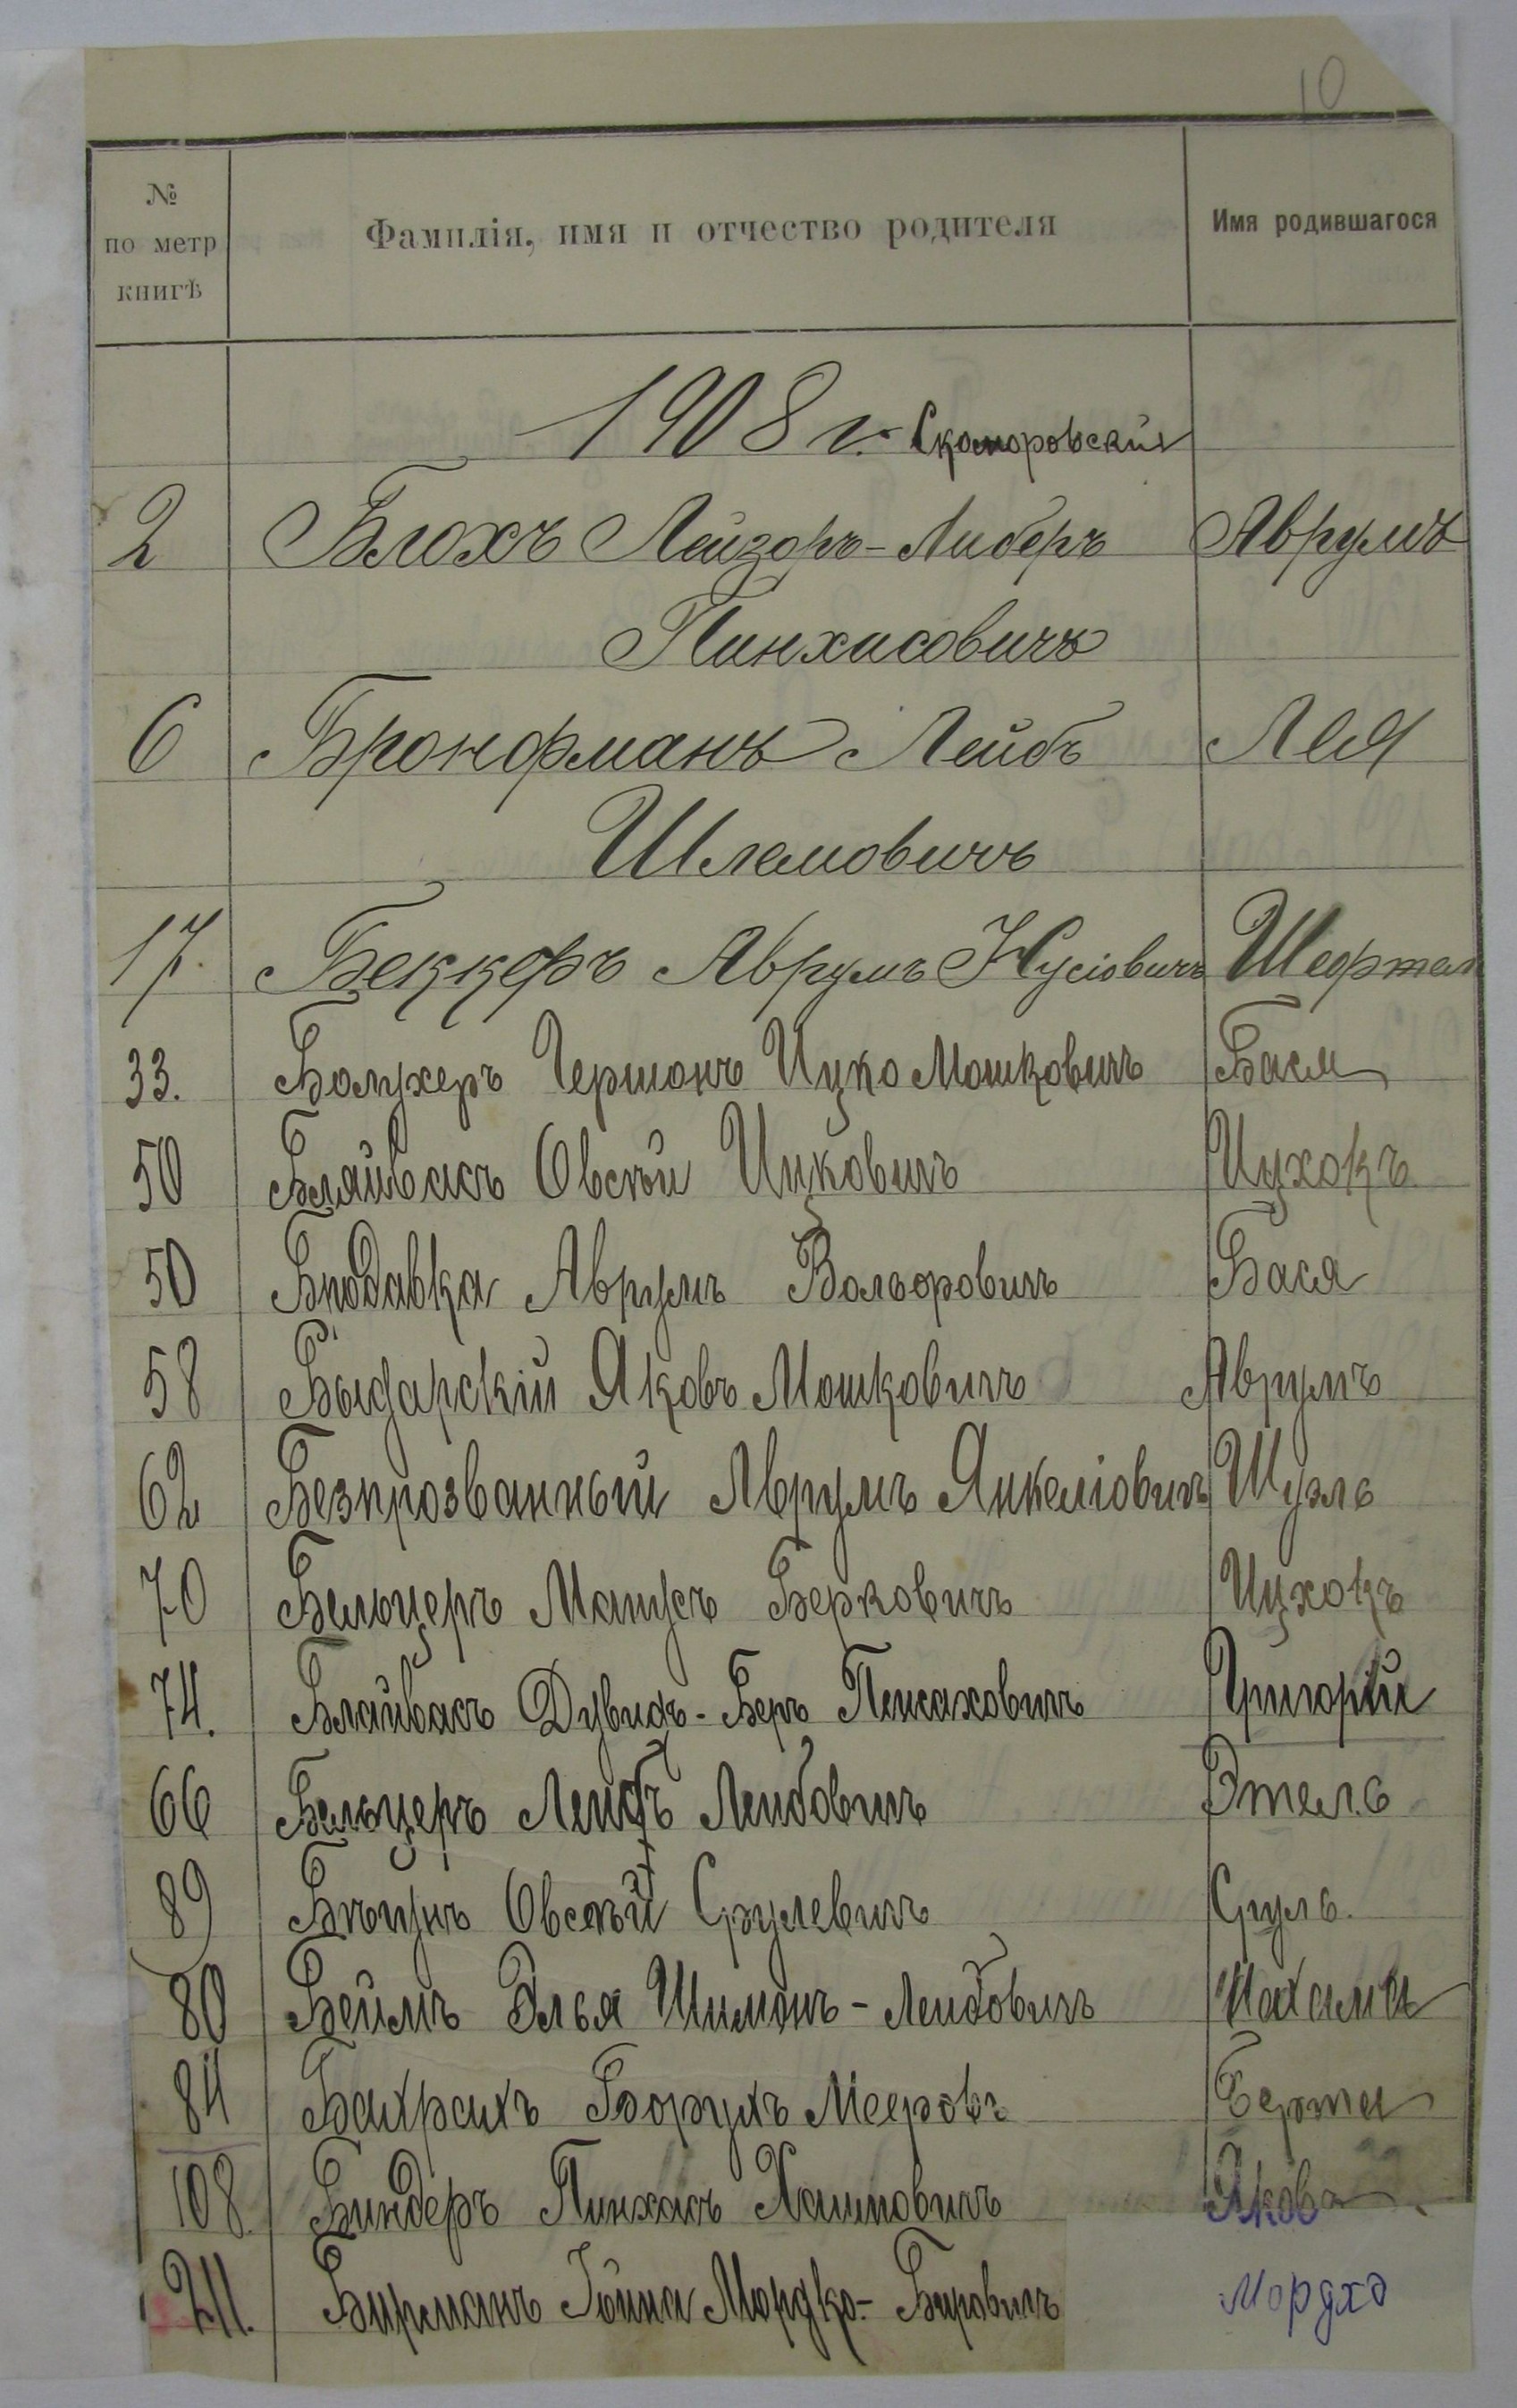 10
№ по метр книгѣ Фамилія, имя и отчество родителя Имя родившагося
1908 г. Скоморовскій
2 Блохъ Лейзоръ-Либеръ Аврумъ
Пинхасовичъ
6 Бронфманъ Лейбъ Лея
Шлемовичъ
17. Беккеръ Аврумъ Нусіовичъ Шефтель
33. Гершонъ Ицко Мошковичъ Бася
50 Бляйвасъ Овсѣй Ицковичъ Ицхокъ
50 Бподавка Аврумъ Вольфовичъ Бася
58 Яковъ Мошковичъ Аврумъ
62 Безпрозванный Аврумъ Янкеліовичъ Шуэль
70 Бельцеръ Матусъ Берковичъ Ицхокъ
74. Блайвасъ Дувидъ-Беръ Пейсаховичъ Григорій
66 Бельцеръ Лейбъ Лейбовичъ Этель
89 Овсѣй Срулевичъ Сруль.
80 Беймъ Элья Шимонъ-Лейбовичъ Нахама
84 Бахрахъ Борухъ Мееровъ Берта
108. Биндеръ Пинхасъ Хаимовичъ Яковъ
211. Бирманъ Іойна Мордко-Беровичъ Мордхэ